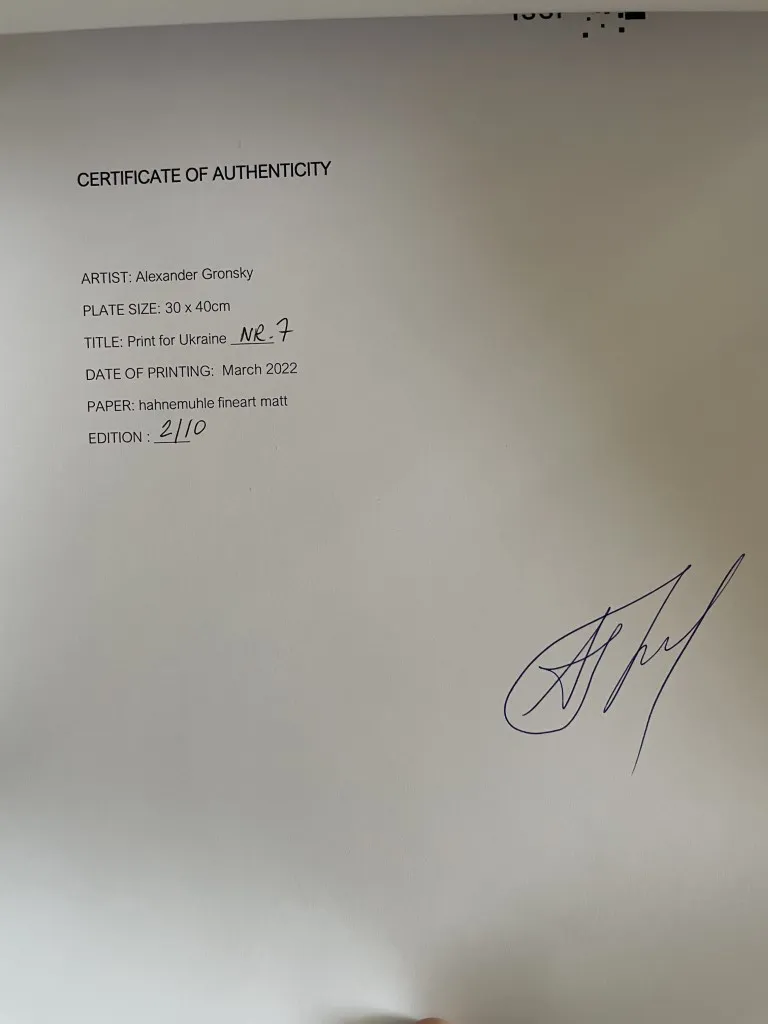 CERTIFICATE OF AUTHENTICITY
ARTIST: Alexander Gronsky
PLATE SIZE: 30 x 40cm
TITLE: Print for Ukraine NR. 7
DATE OF PRINTING: March 2022
PAPER: hahnemuhle fineart matt
EDITION : 2/10